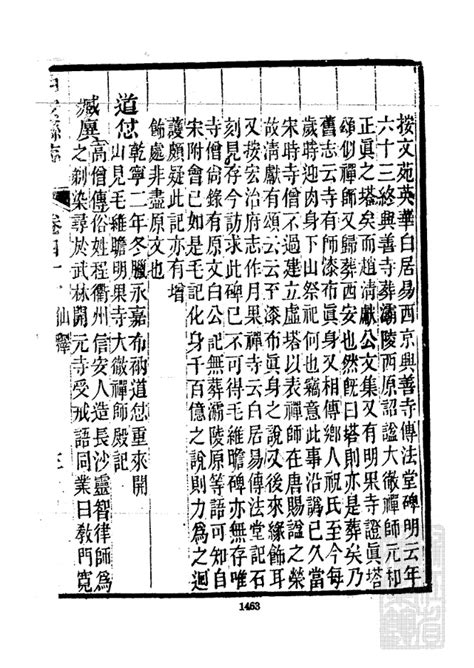 按文苑英華白居易西京興善寺傳法堂碑明云年
六十三終興善寺葬灞陵西原詔諡大徹禪師元和
正眞之塔矣而趙清獻公文集又有明果寺證眞塔
頌似禪師又歸葬西安也然旣曰塔則亦是葬矣乃
舊志云寺有師漆布眞身又相傳鄉人祝氏至今每
歲時迎肉身下山祭祀何也竊意此事沿譌已久當
宋時寺僧不過建立虛塔以表禪師在唐賜諡之榮
故清獻有頌云云至漆布眞身之說又後來緣飾耳
又按宏治府志作月果禪寺云白居易傳法堂記石
刻見存今訪求此碑已不可得毛維瞻碑亦無存唯
寺僧尙錄有原文白公記無葬灞陵原等語可知自
宋附會已如是毛記化身千百億之說則力爲之迴
護頗疑此記亦有增
飾處非盡原文也
道怤
乾寧二年冬臘永嘉布衲道怤重來開
山見毛維瞻明果寺大徹禪師殿記
臧廙
高僧傳俗姓程衢州信安人造長沙靈智律師爲
之剃染尋於武林開元寺受戒語同業曰敎門寬
縣志
卷四十
仙釋
三
1463